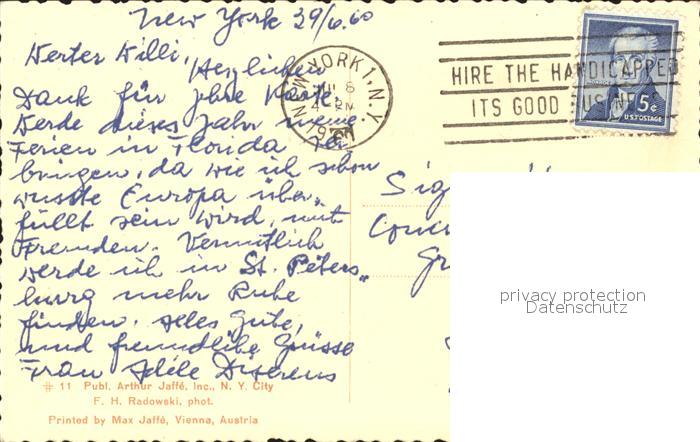 New York 29/6.60
Werter Willi,
Herzlichen
Dank für Ihre Karte.
Werde dieses Jahr meine
Ferien in Florida ver
bringen, da wie ich schon
wusste Europa über„
füllt sein wird, mit
Fremden. Vermutlich
werde ich in St. Peters„
burg mehr Ruhe
finden. Alles Gute,
und freundliche Grüsse
Frau Adèle Diserens
NEW YORK 1, N.Y.
PM
HIRE THE HANDICAPPED
ITS GOOD BUSINESS
5¢
U.S. POSTAGE
Sig
Conc
Gr
privacy protection
Datenschutz
# 11 Publ. Arthur Jaffé, Inc., N. Y. City
F. H. Radowski, phot.
Printed by Max Jaffé, Vienna, Austria